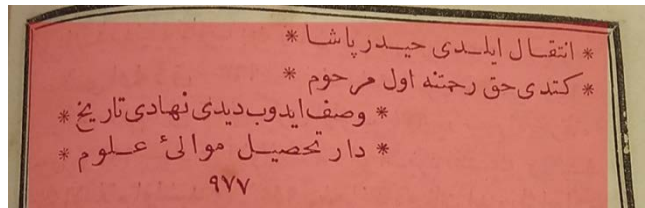 * انتقال ايلدى حيدر پاشا *
* كتدى حق رحمتنه اول مرحوم *
* وصف ايدوب ديدى نهادى تاريخ *
* دار تحصيل موالئ علوم *
٩٧٧